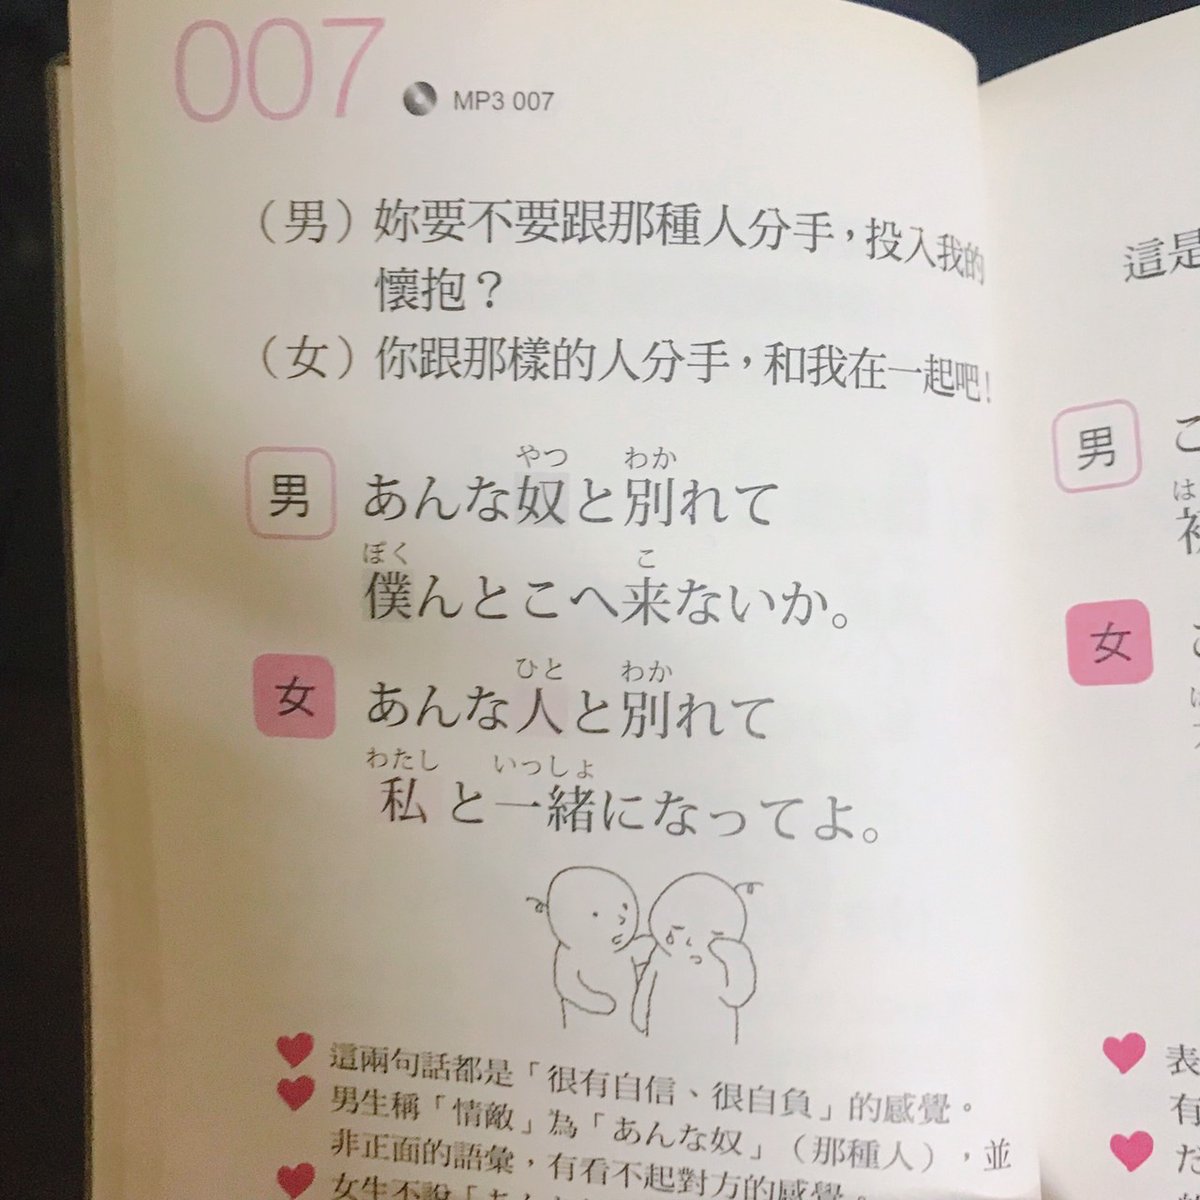 007
MP3 007
（男）妳要不要跟那種人分手，投入我的
懷抱？
（女）你跟那樣的人分手，和我在一起吧！
やつ わか
男 あんな奴と別れて
ぼく こ
僕んとこへ来ないか。
ひと わか
女 あんな人と別れて
わたし いっしょ
私と一緒になってよ。
這兩句話都是「很有自信、很自負」的感覺。
男生稱「情敵」為「あんな奴」（那種人），並
非正面的語彙，有看不起對方的感覺。
女生不說「あん
這是
男
こ
は
女
表
有
た